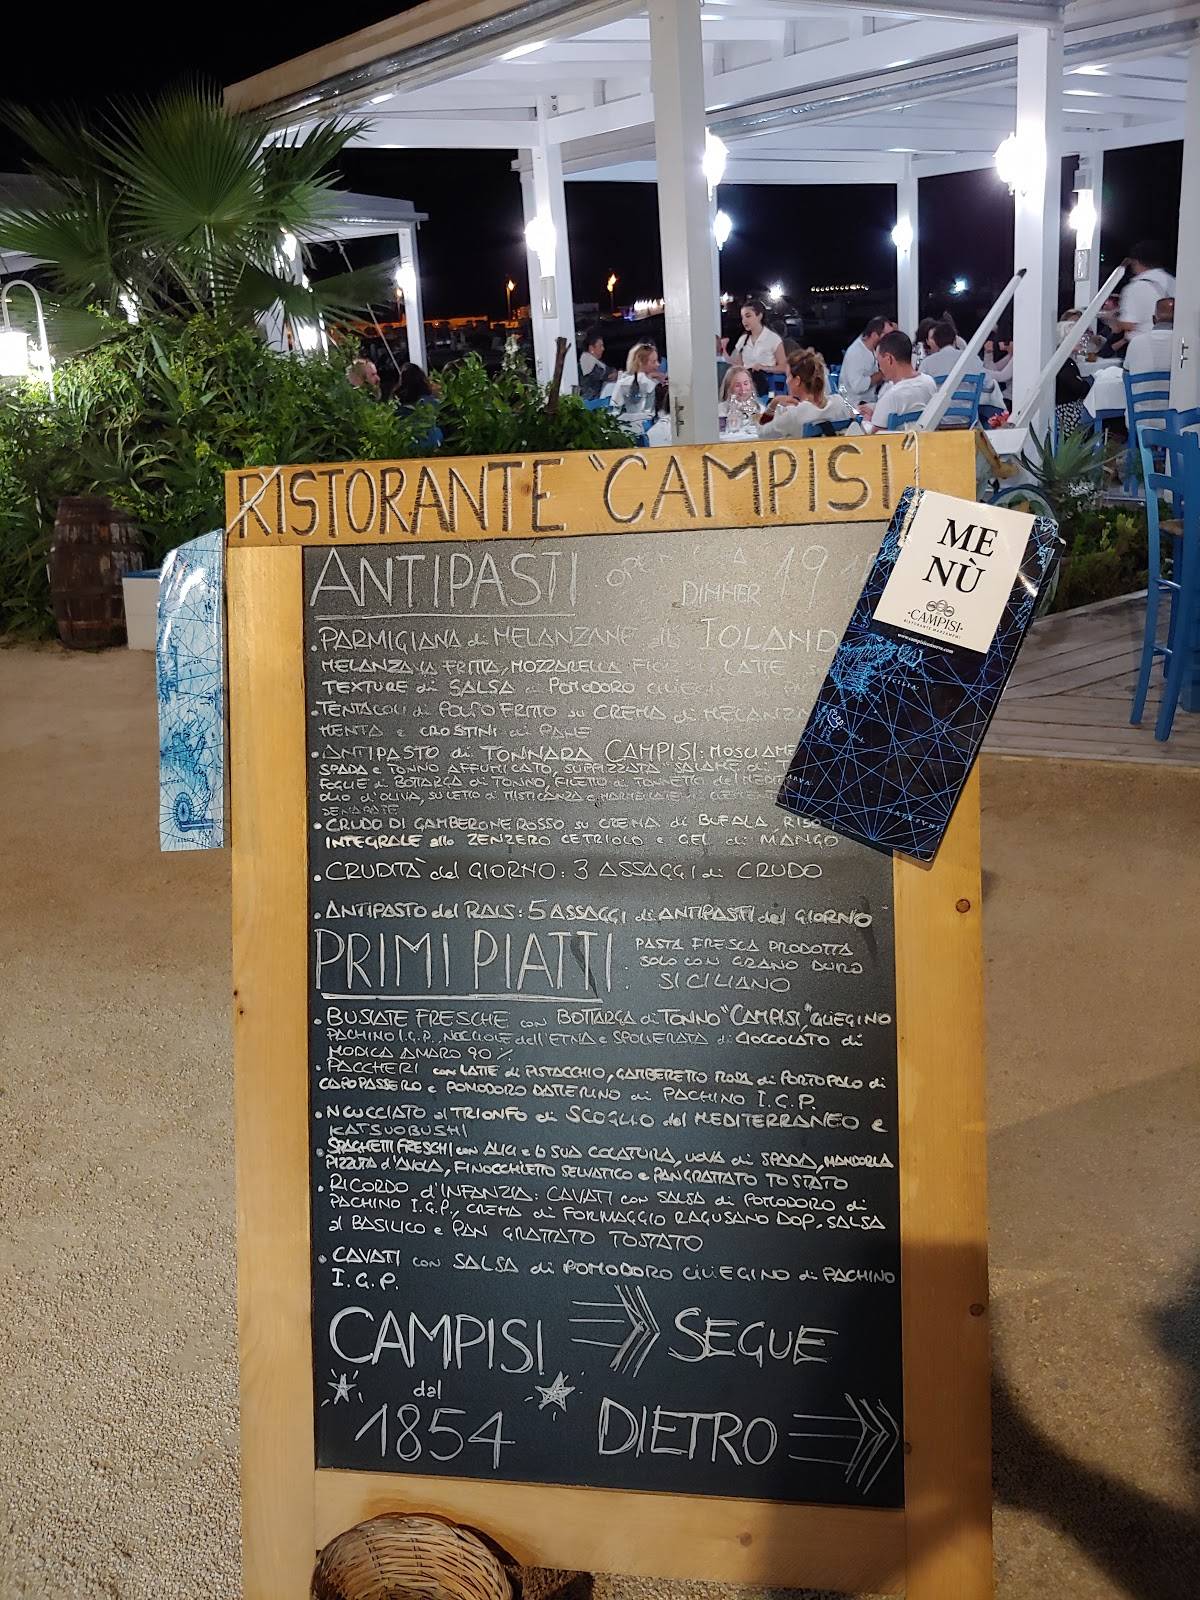 RISTORANTE "CAMPISI"
ANTIPASTI
DINNER 19
.PARMIGIANA di MELANZANE IOLAND
MELANZANA FRITTA, MOZZARELLA FIOR LATTE
TEXTURE di SALSA di POMODORO CILIEG
.TENTACOLI di POLPO FRITTO su CREMA di MELANZA
MENTA e CROSTINI di PANE
.ANTIPASTO di TONNARA CAMPISI: MOSCIAME
SPADA e TONNO AFFUMICATO, SUPPIZZATA "SALAME di T
FOGLIE di BOTTARGA di TONNO, FILETTO di TONNETTO del MEDIT
OLIO d'OLIVA, SU LETTO di MISTICANZA e MARMELLATE di CLEMENT
.CRUDO DI GAMBERONE ROSSO su CREMA di BUFALA, RISO
INTEGRALE allo ZENZERO CETRIOLO e GEL di MANGO
.CRUDITÀ del GIORNO: 3 ASSAGGI di CRUDO
.ANTIPASTO del RAIS: 5 ASSAGGI di ANTIPASTI del GIORNO
PRIMI PIATTI:
PASTA FRESCA PRODOTTA
SOLO CON GRANO DURO
SICILIANO
.BUSIATE FRESCHE con BOTTARGA di TONNO "CAMPISI", CILIEGINO
PACHINO I.G.P., NOCCIOLE dell'ETNA e SPOLVERATA di CIOCCOLATO di
MODICA AMARO 90%
.PACCHERI con LATTE di PISTACCHIO, GAMBERETTO ROSA di PORTOPALO di
CAPOPASSERO e POMODORO DATTERINO di PACHINO I.G.P.
.NCUCCIATO al TRIONFO di SCOGLIO del MEDITERRANEO e
KATSUOBUSHI
.SPAGHETTI FRESCHI con ALICI e la SUA COLATURA, UOVA di SPADA, MANDORLA
PIZZUTA d'AVOLA, FINOCCHIETTO SELVATICO e PANGRATTATO TOSTATO
.RICORDO d'INFANZIA: CAVATI con SALSA di POMODORO di
PACHINO I.G.P., CREMA di FORMAGGIO RAGUSANO DOP, SALSA
al BASILICO e PAN GRATTATO TOSTATO
.CAVATI con SALSA di POMODORO CILIEGINO di PACHINO
I.G.P.
CAMPISI SEGUE
dal
1854 DIETRO
ME
NÙ
·CAMPISI·
RISTORANTE MARZAMEMI